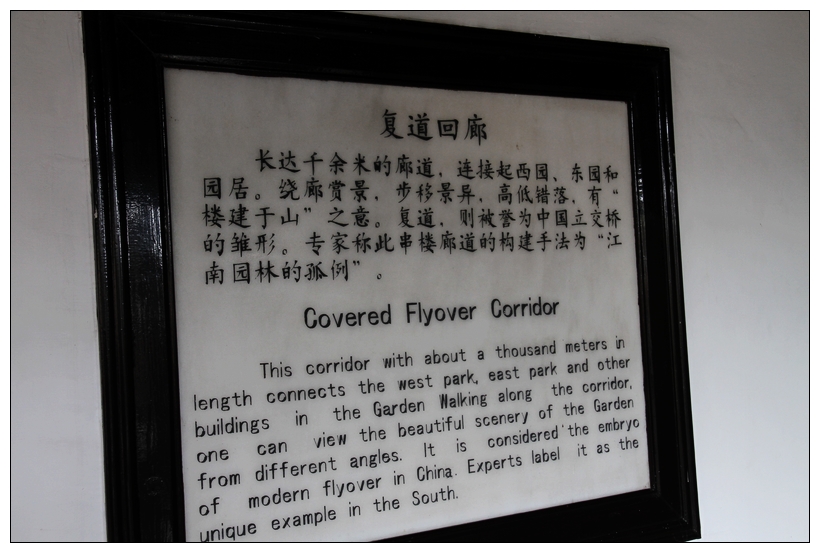 复道回廊
长达千余米的廊道，连接起西园、东园和
园居。绕廊赏景，步移景异，高低错落，有“
楼建于山”之意。复道，则被誉为中国立交桥
的雏形。专家称此串楼廊道的构建手法为“江
南园林的孤例”。
Covered Flyover Corridor
This corridor with about a thousand meters in
length connects the west park, east park and other
buildings in the Garden Walking along the corridor,
one can view the beautiful scenery of the Garden
from different angles. It is considered the embryo
of modern flyover in China. Experts label it as the
unique example in the South.